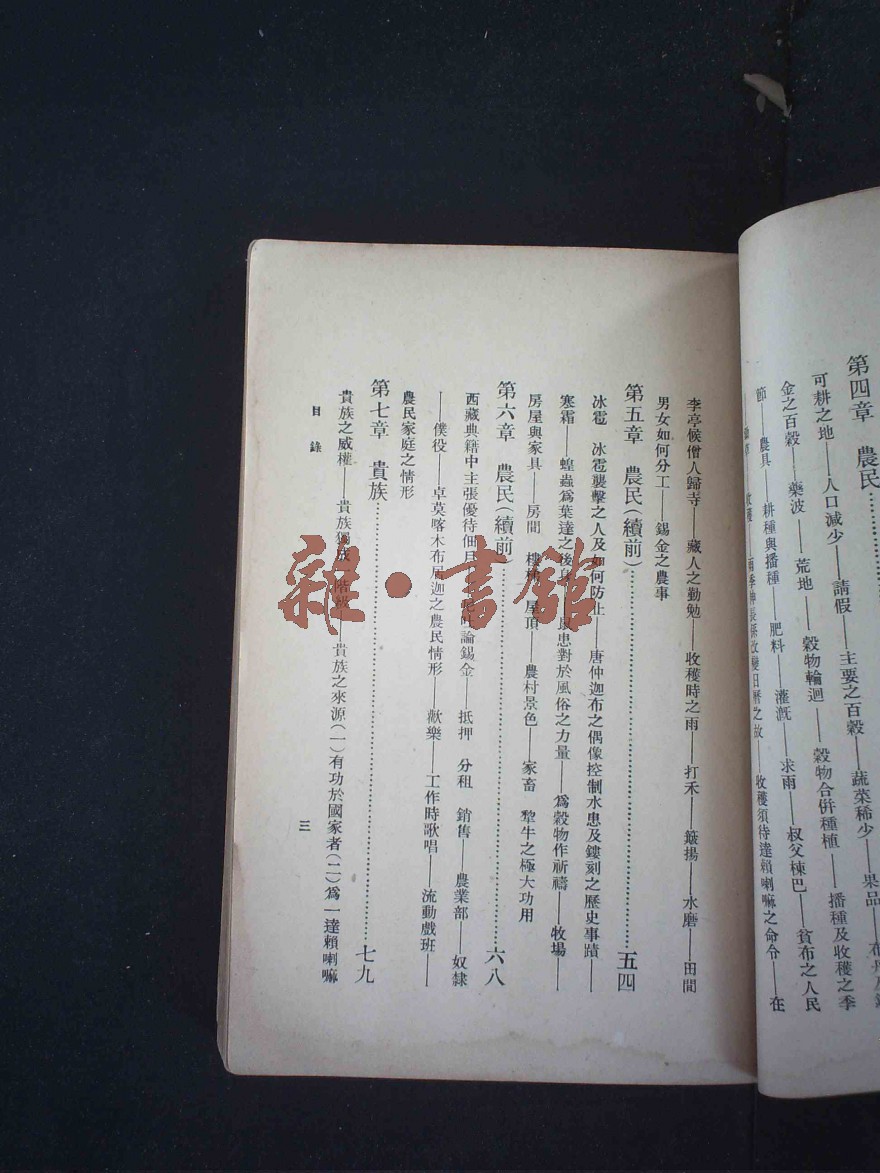 第四章　農民
可耕之地——人口減少——請假——主要之百穀——蔬菜稀少——果品——
金之百穀——藥波——荒地——穀物輪迴——穀物合倂種植——播種及收穫之季
節——農具——耕種與播種——肥料——灌溉——求雨——叔父棟巴——貧布之人民
收穫——雨季神長孫改變日曆之故——收穫須待達賴喇嘛之命令——在
李亭候僧人歸寺——藏人之勤勉——收穫時之雨——打禾——簸揚——水磨——田間
男女如何分工——錫金之農事
第五章　農民（續前）…………五四
冰雹　冰雹襲擊之人及如何防止——唐仲迦布之偶像控制水患及鏤刻之歷史事蹟——
寒霜——蝗蟲爲葉達之後身——患對於風俗之力量——爲穀物作祈禱——牧場——
房屋與家具——房間　樓梯　屋頂——農村景色——家畜　犂牛之極大功用
第六章　農民（續前）…………六八
西藏典籍中主張優待佃——論錫金——抵押　分租　銷售——農業部——奴隸
——僕役——卓莫喀木布居迦之農民情形——歡樂——工作時歌唱——流動戲班——
農民家庭之情形
第七章　貴族…………七九
貴族之威權——貴族獨成一階級——貴族之來源（一）有功於國家者（二）爲一達賴喇嘛
目錄
三
雜·書館